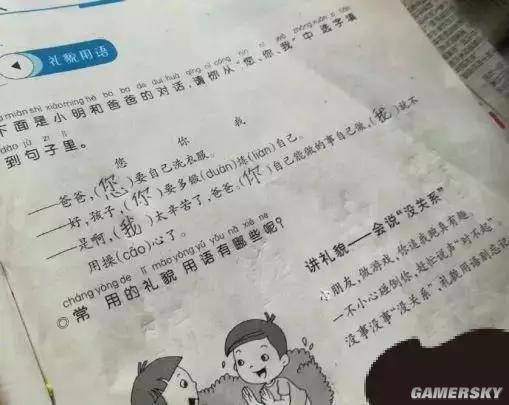 礼貌用语
miàn shì xiǎo míng hé bà ba de duì huà qǐng nǐ cóng nín nǐ wǒ zhōng xuǎn zì tián
下面是小明和爸爸的对话,请你从“您、你、我”中选字填
dào jù zi lǐ
到句子里。
您 你 我
——爸爸,(您)要自己洗衣服。
——好,孩子,(你)要多锻(duàn)炼(liàn)自己。
——是啊,(我)太辛苦了,爸爸。(你)自己能做的事自己做,(我)就不
用操(cāo)心了。
cháng yòng de lǐ mào yòng yǔ yǒu nǎ xiē ne
◎常用的礼貌用语有哪些呢?
讲礼貌——会说“没关系”
小朋友,做游戏,你追我跑真有趣。
一不小心碰倒你,赶忙说声“对不起”。
没事没事“没关系”,礼貌用语别忘记
GAMERSKY